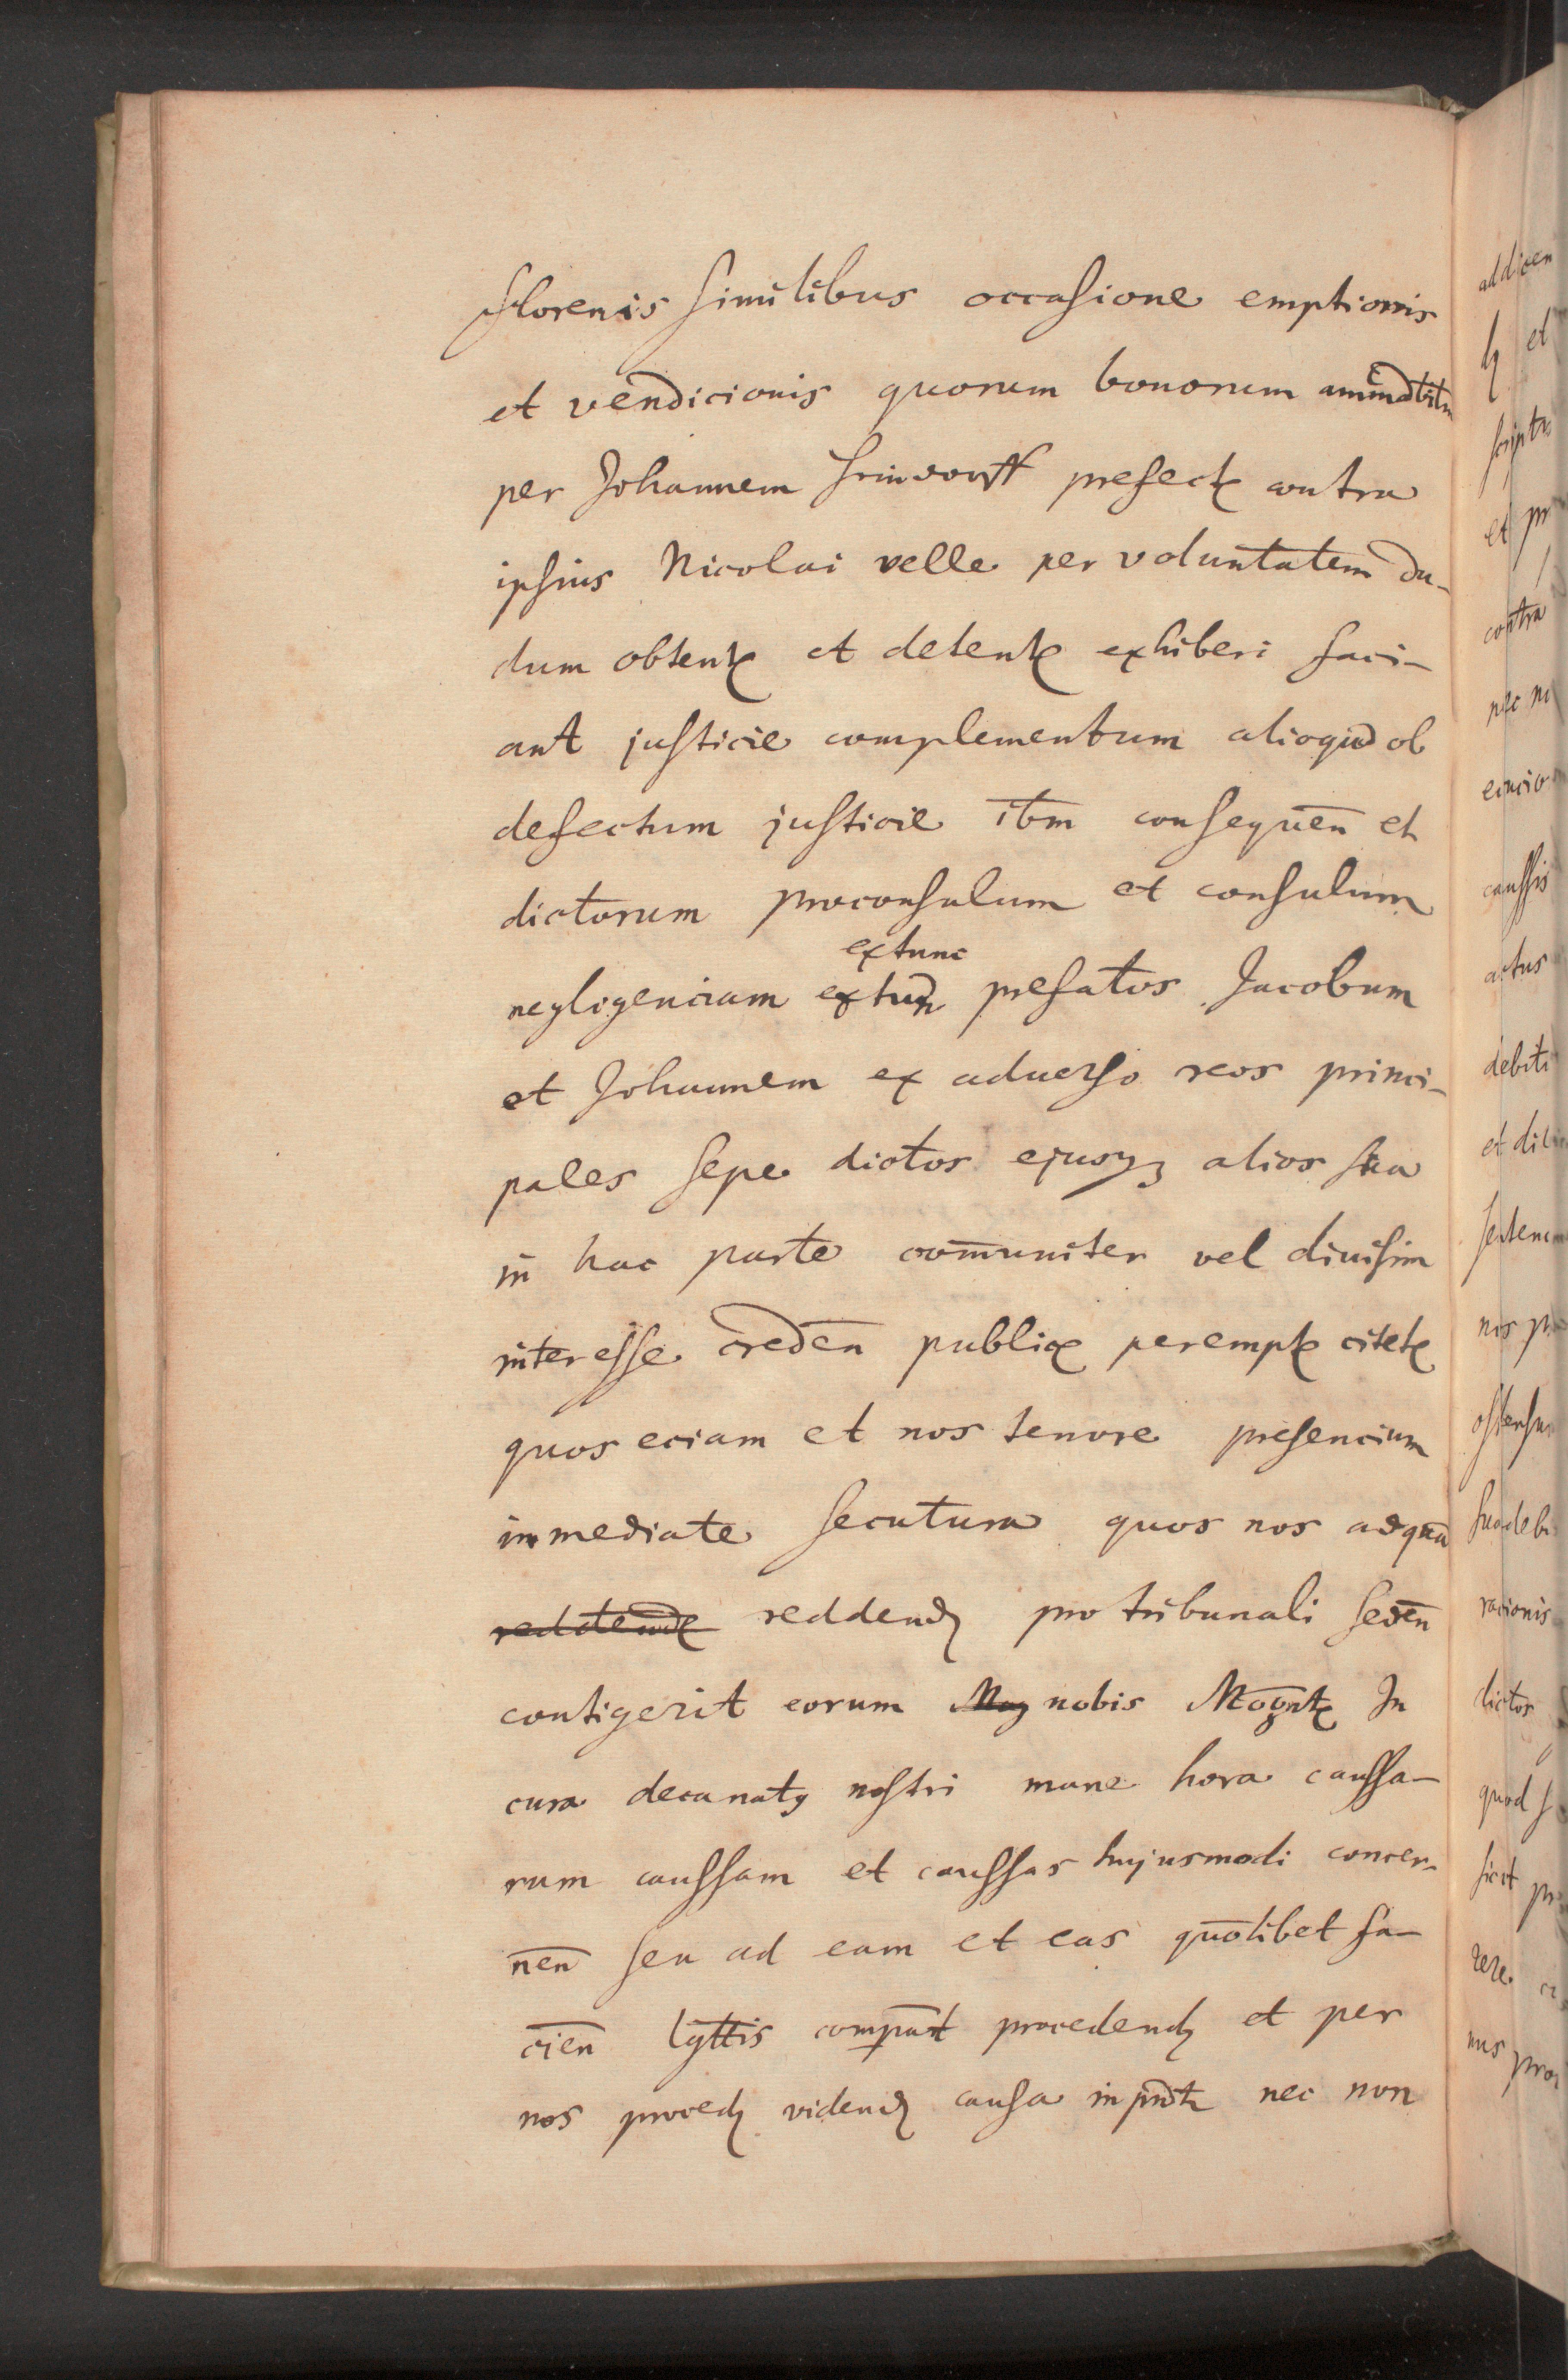 florenis similibus occasione emptionis
et vendicionis quorum bonorum
per Johannem prefect contra
ipsius Nicolai velle per voluntatem du-
dum obtent et detent exhiberi faci-
ant justicie complementum alioquid ob
defectum justicie ibm consequen et
dictorum proconsulum et consulum
extunc
negligenciam extun prefatos Jacobum
et Johannem ex aduerso reos princi-
pales sepe dictos ejusqz alios sua
in hac parte communiter vel diuisim
interesse creden public perempt citet
quos eciam et nos tenore presencium
immediate secutura quos nos ad
reddend pro tribunali seden
contigerit eorum nobis Mogunt In
cura decanatus nostri mane hora caussa-
rum caussam et caussas hujusmodi concer-
nen seu ad eam et eas quolibet fa-
cien compart procedend et per
nos proced vidend causa in nec non
addicen
et
scripta
et pr
contra
nec no
caussis
actus
debiti
et dic
nos p
ostensu
sua deb
racionis
dictos
quod s
sicut pr
nus pro